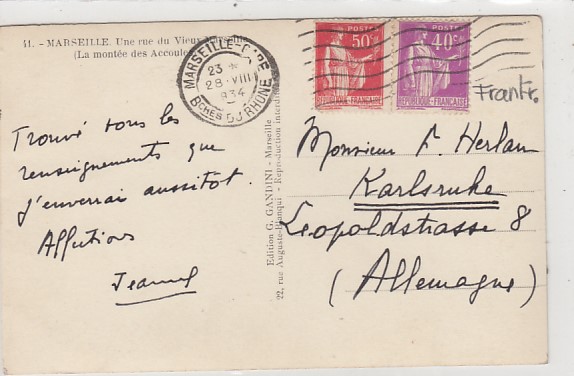 41. - MARSEILLE. Une rue du Vieux Marseille
(La montée des Accoules)
MARSEILLE-GARE
23 *
28 · VIII
34
BCHES DU RHÔNE
POSTES
50c
REPUBLIQUE FRANÇAISE
POSTES
40c
REPUBLIQUE FRANÇAISE
Frankr.
Trouvé tous les
renseignements que
j'enverrai aussitôt.
Affections
Edition G. GANDINI - Marseille
22, rue Auguste-Blanqui - Reproduction interdite
Monsieur F. Herlan
Karlsruhe
Leopoldstrasse 8
(Allemagne)